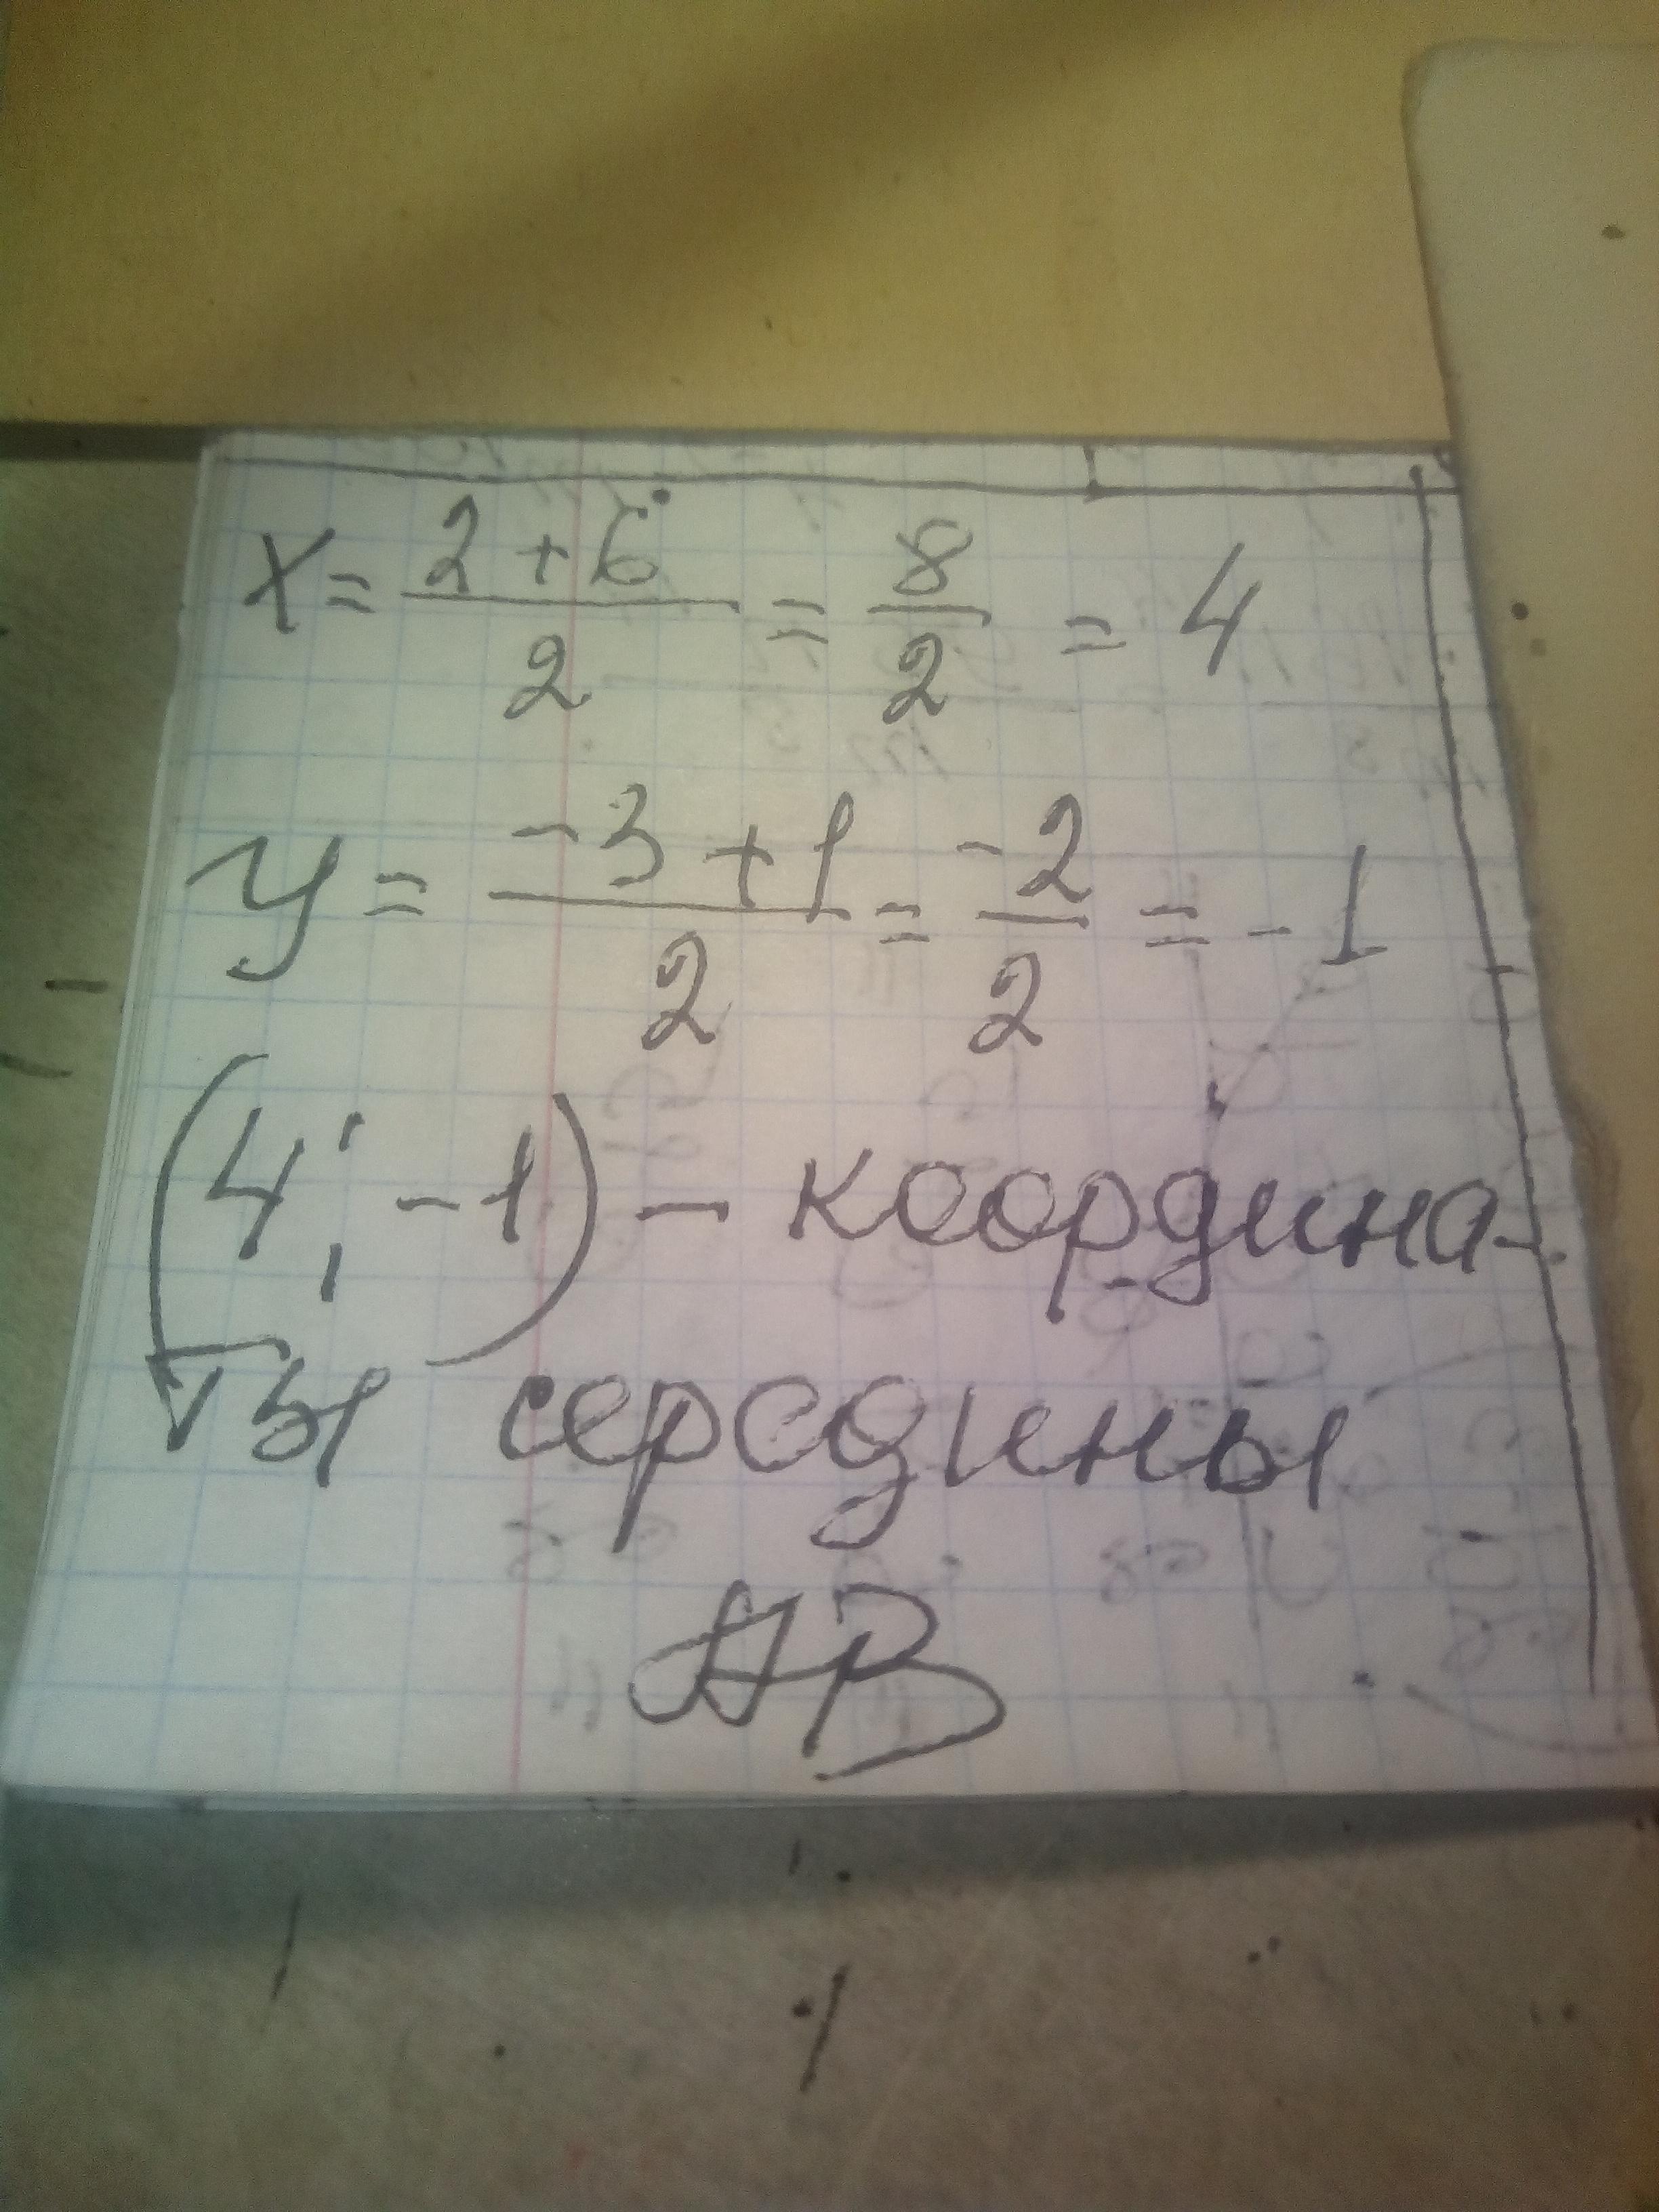 x = (2+6)/2 = 8/2 = 4
y = (-3+1)/2 = -2/2 = -1
(4; -1) - координа-
ты середины
АВ